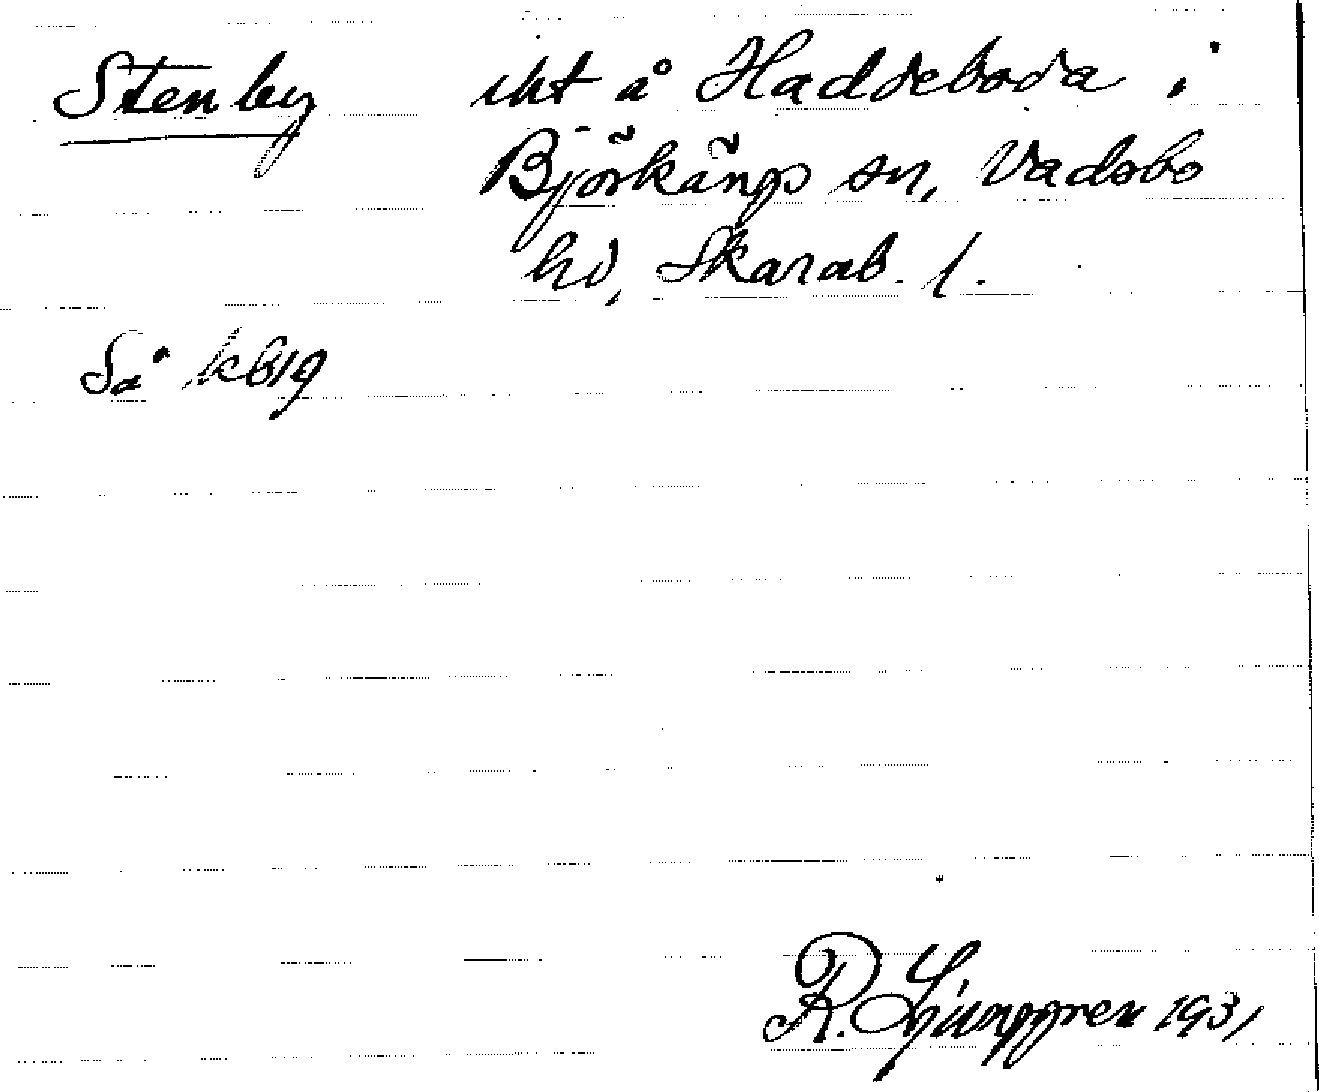 Stenby uht å Haddeboda i
Björkängs sn, Vadsbo
hd, Skarab. l.
Så kb19
R. Ljunggren 1931